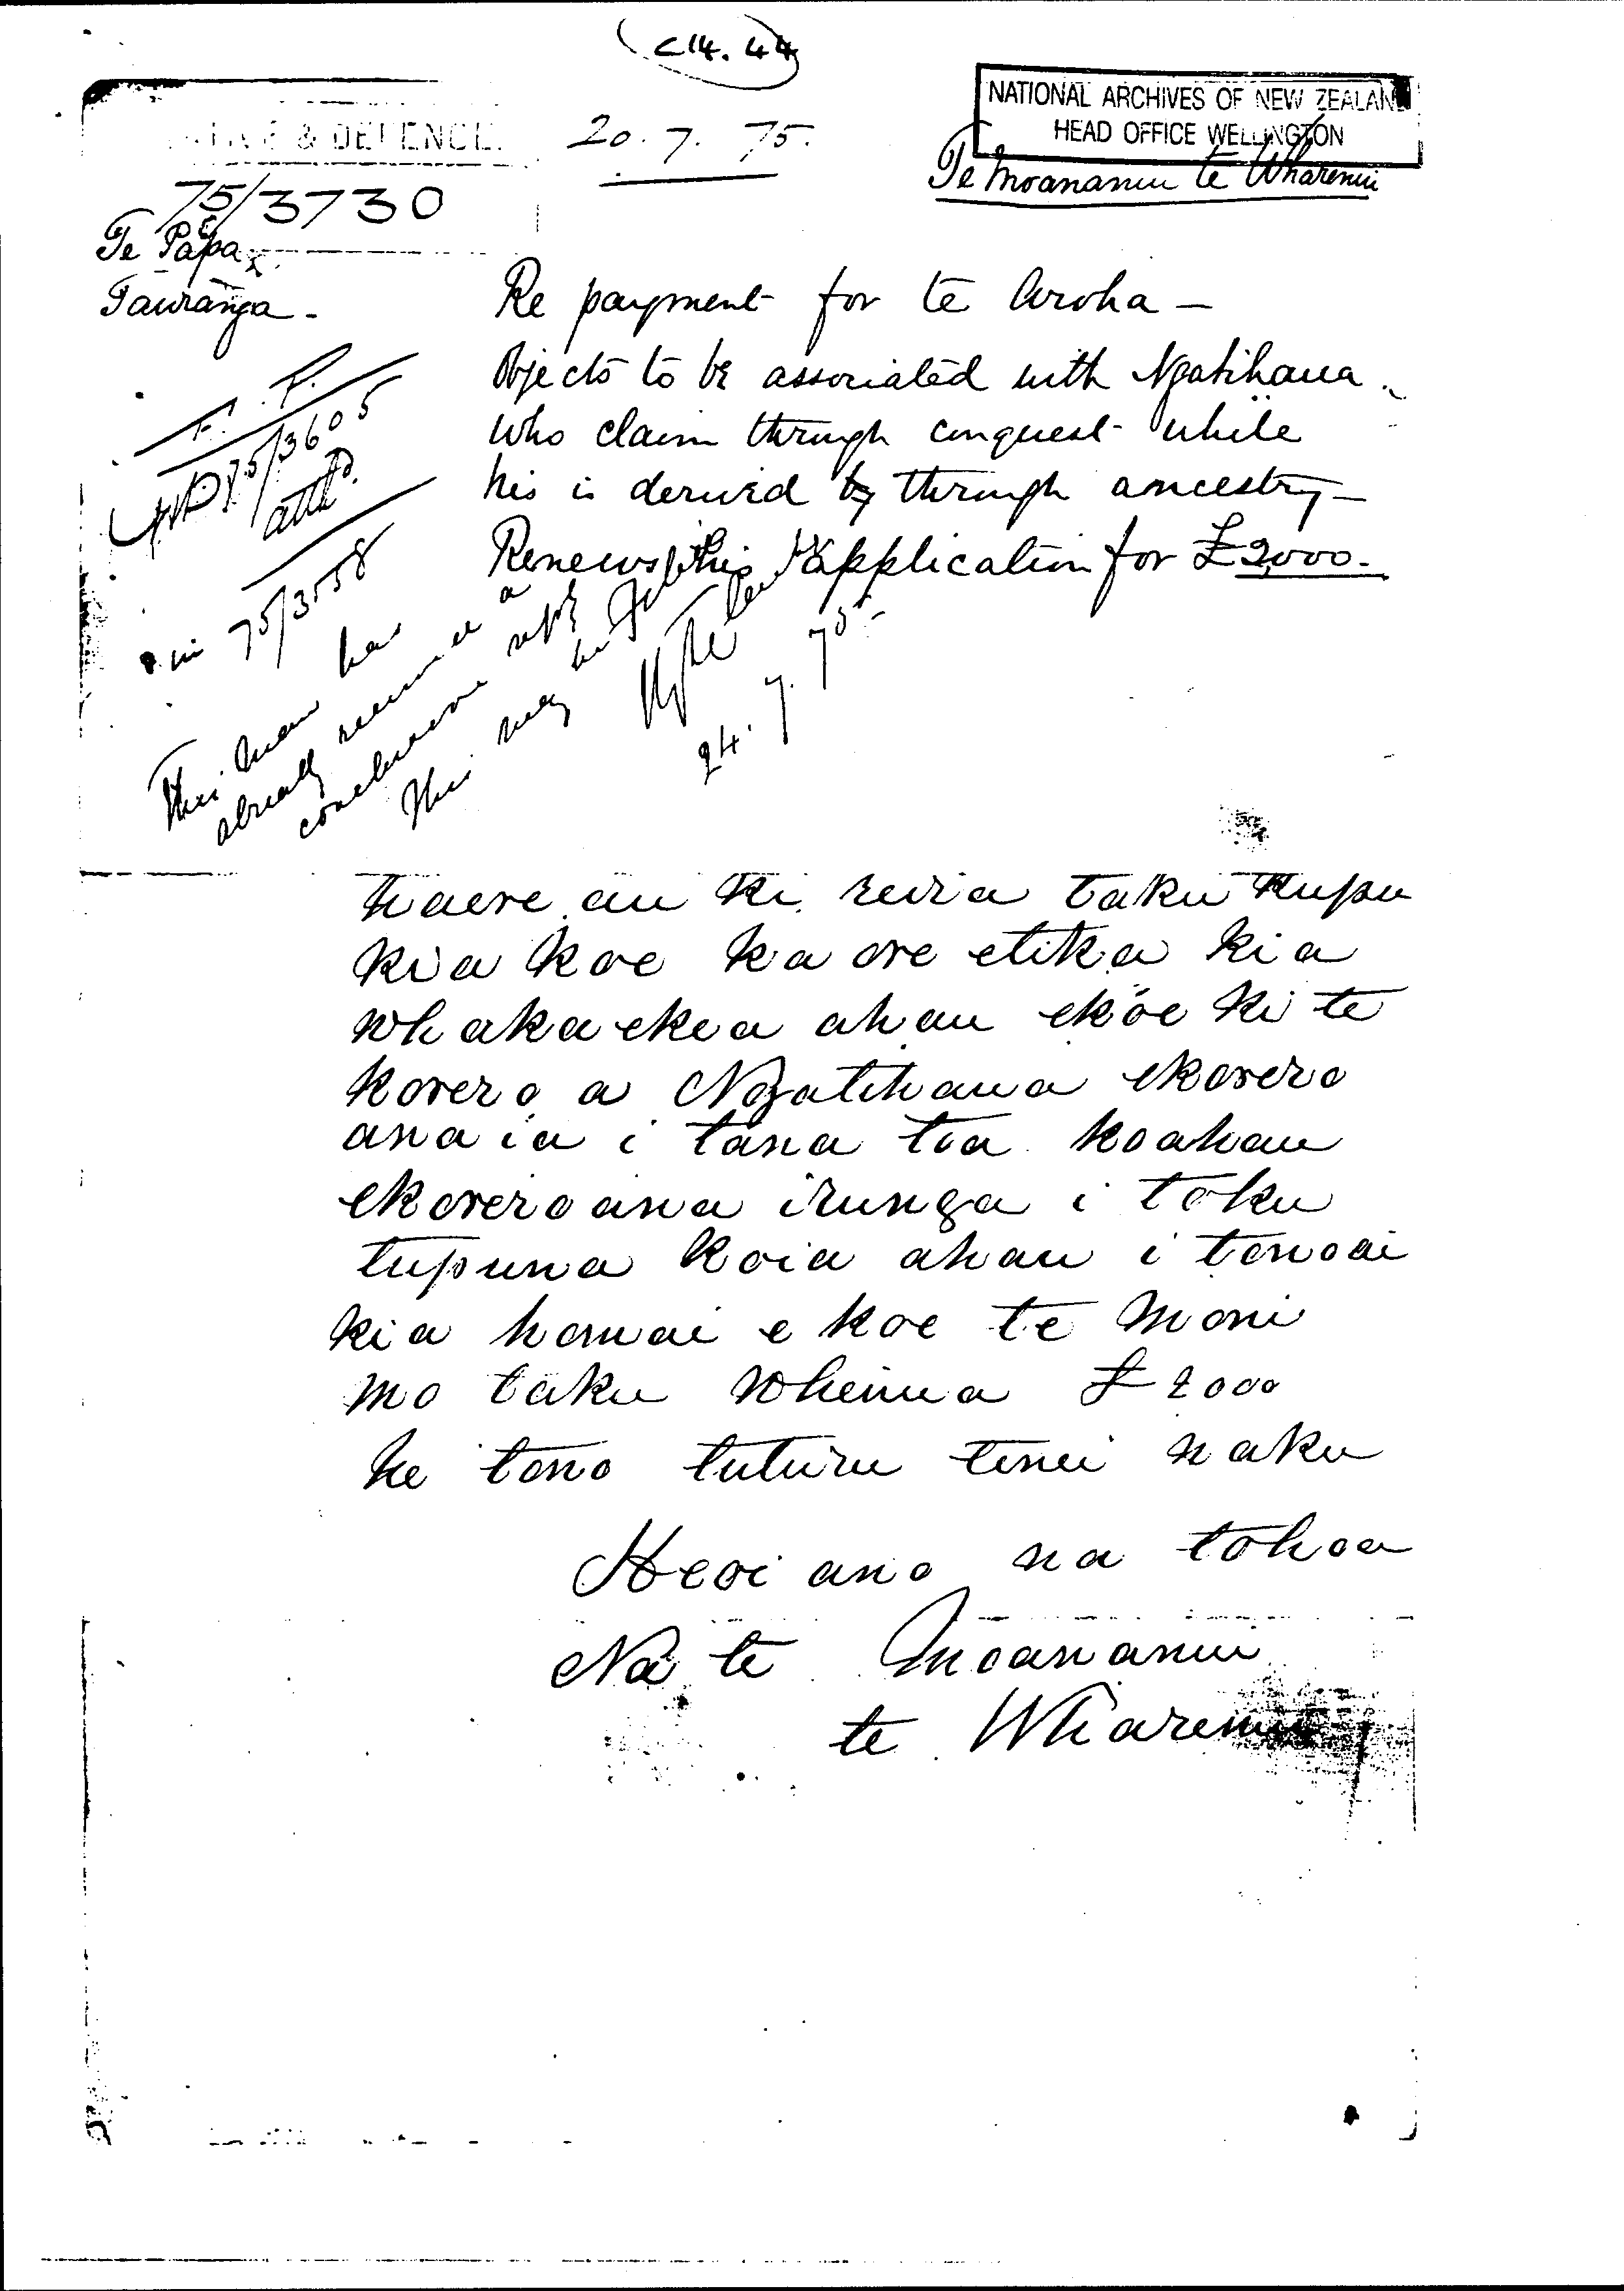 C14. 44
NATIONAL ARCHIVES OF NEW ZEALAND
HEAD OFFICE WELLINGTON
& DEFENCE.
20. 7. 75.
Te Moananui te Wharenui
75/3730
Te Papa
Tauranga -
Re payment for te Aroha -
Objects to be associated with Ngatihaua
who claim through conquest while
his is derived by through ancestry -
Renews his application for £2000.
75/3605
attd.
75/3558
This man has
already received a
conclusive reply
This may be
24. 7. 75
haere au ki reira taku kupu
kia koe ka ore etika kia
whakaekea ahau ekoe ki te
korero a Ngatihaua ekorero
ana ia i tana toa koahau
ekorero ana irunga i toku
tupuna koia ahau i tonoai
kia homai e koe te moni
mo taku whenua £2000
he tono tuturu tenei naku
Heoi ano na tohoa
Na te Moananui
te Wharenui